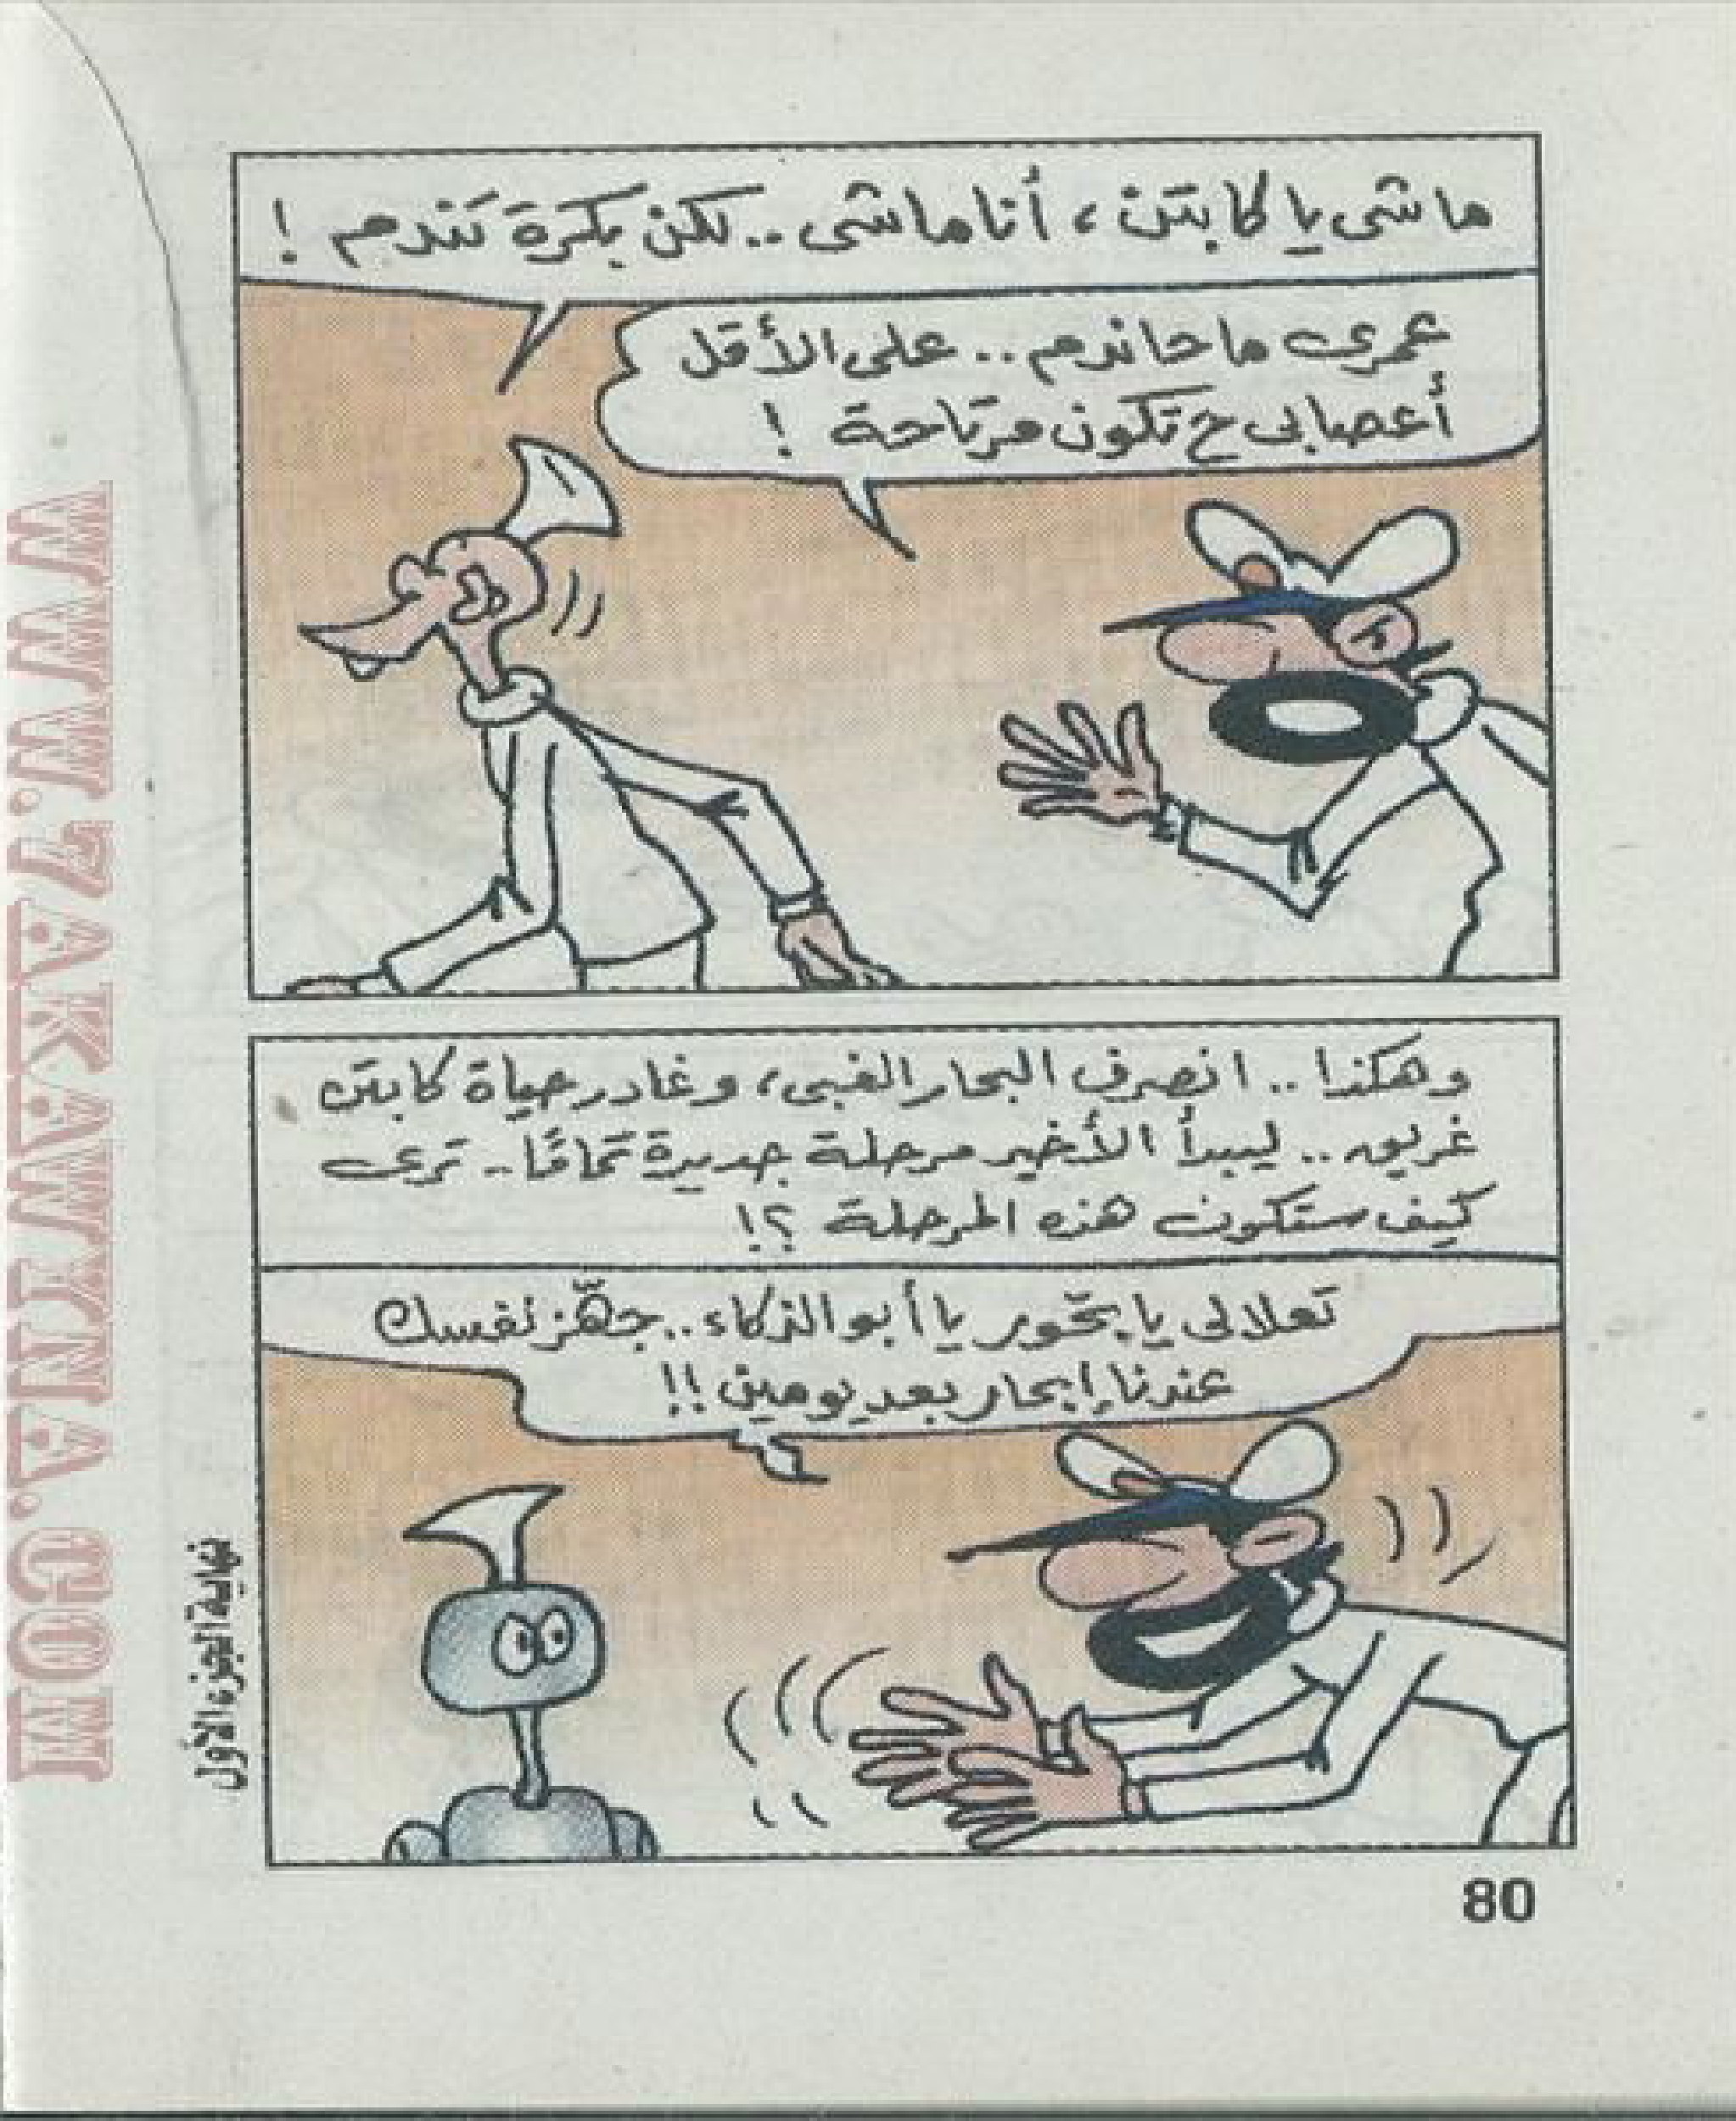 ماشى يا كابتن، أنا ماشى .. لكن بكرة تندم !
عمرى ما حاندم .. على الأقل
أعصابى ح تكون مرتاحة !
وهكذا .. انصرف البحار الغبى، وغادر حياة كابتن
غريق .. ليبدأ الأخير مرحلة جديدة تمامًا .. ترى
كيف ستكون هذه المرحلة ؟!
تعلالى يا بحّور يا أبو الذكاء .. جهّز نفسك
عندنا إبحار بعد يومين !!
نهاية الجزء الأول
80